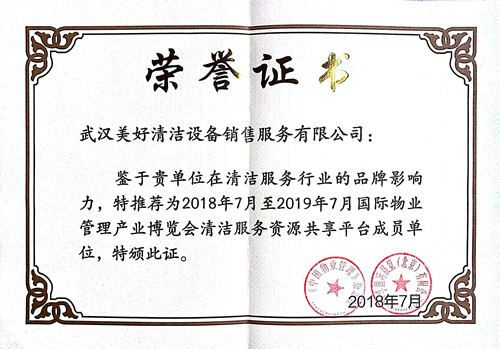 荣誉证书
武汉美好清洁设备销售服务有限公司：
鉴于贵单位在清洁服务行业的品牌影响
力，特推荐为2018年7月至2019年7月国际物业
管理产业博览会清洁服务资源共享平台成员单
位，特颁此证。
《中国物业管理》杂志
（北京）有限
2018年7月